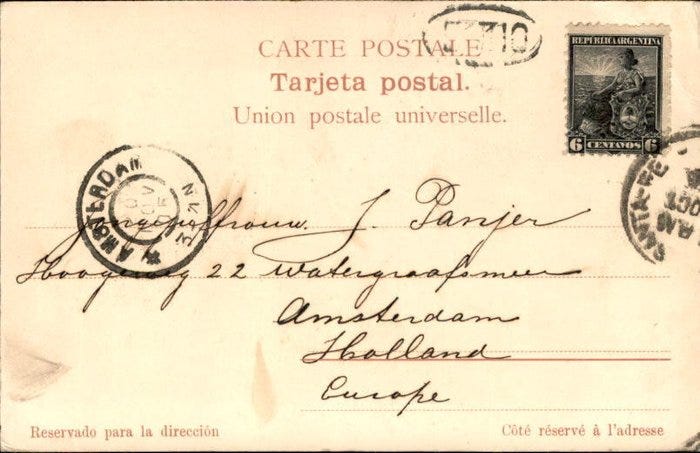 CARTE POSTALE
Tarjeta postal.
Union postale universelle.
REPÚBLICA ARGENTINA
6 CENTAVOS 6
SANTA-FE
OCT
AMSTERDAM
Jongejuffrouw J. Panjer
Hoogeweg 22 Watergraafsmeer
Amsterdam
Holland
Europe
Reservado para la dirección
Côté réservé à l'adresse